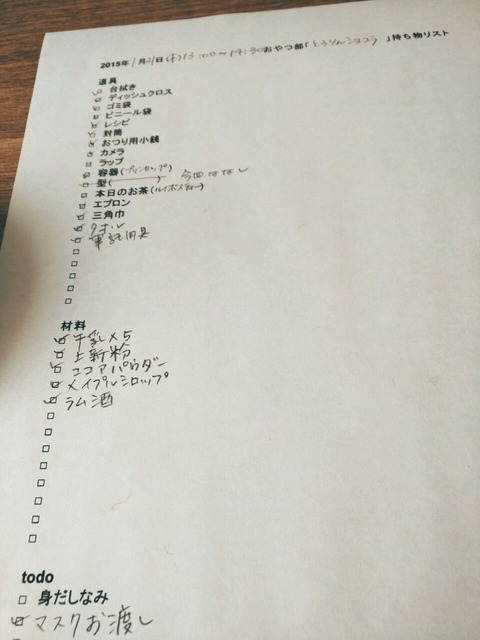 2015年1月21日(木)13:00～14:30おやつ部「とろりんショコラ」持ち物リスト
道具
台拭き
ディッシュクロス
ゴミ袋
ビニール袋
レシピ
封筒
おつり用小銭
カメラ
ラップ
容器(プリンカップ)
型( ) 今回はなし
本日のお茶(ルイボスティー)
エプロン
三角巾
タオル
筆記用具
材料
牛乳×5
上新粉
ココアパウダー
メイプルシロップ
ラム酒
todo
身だしなみ
マスクお渡し